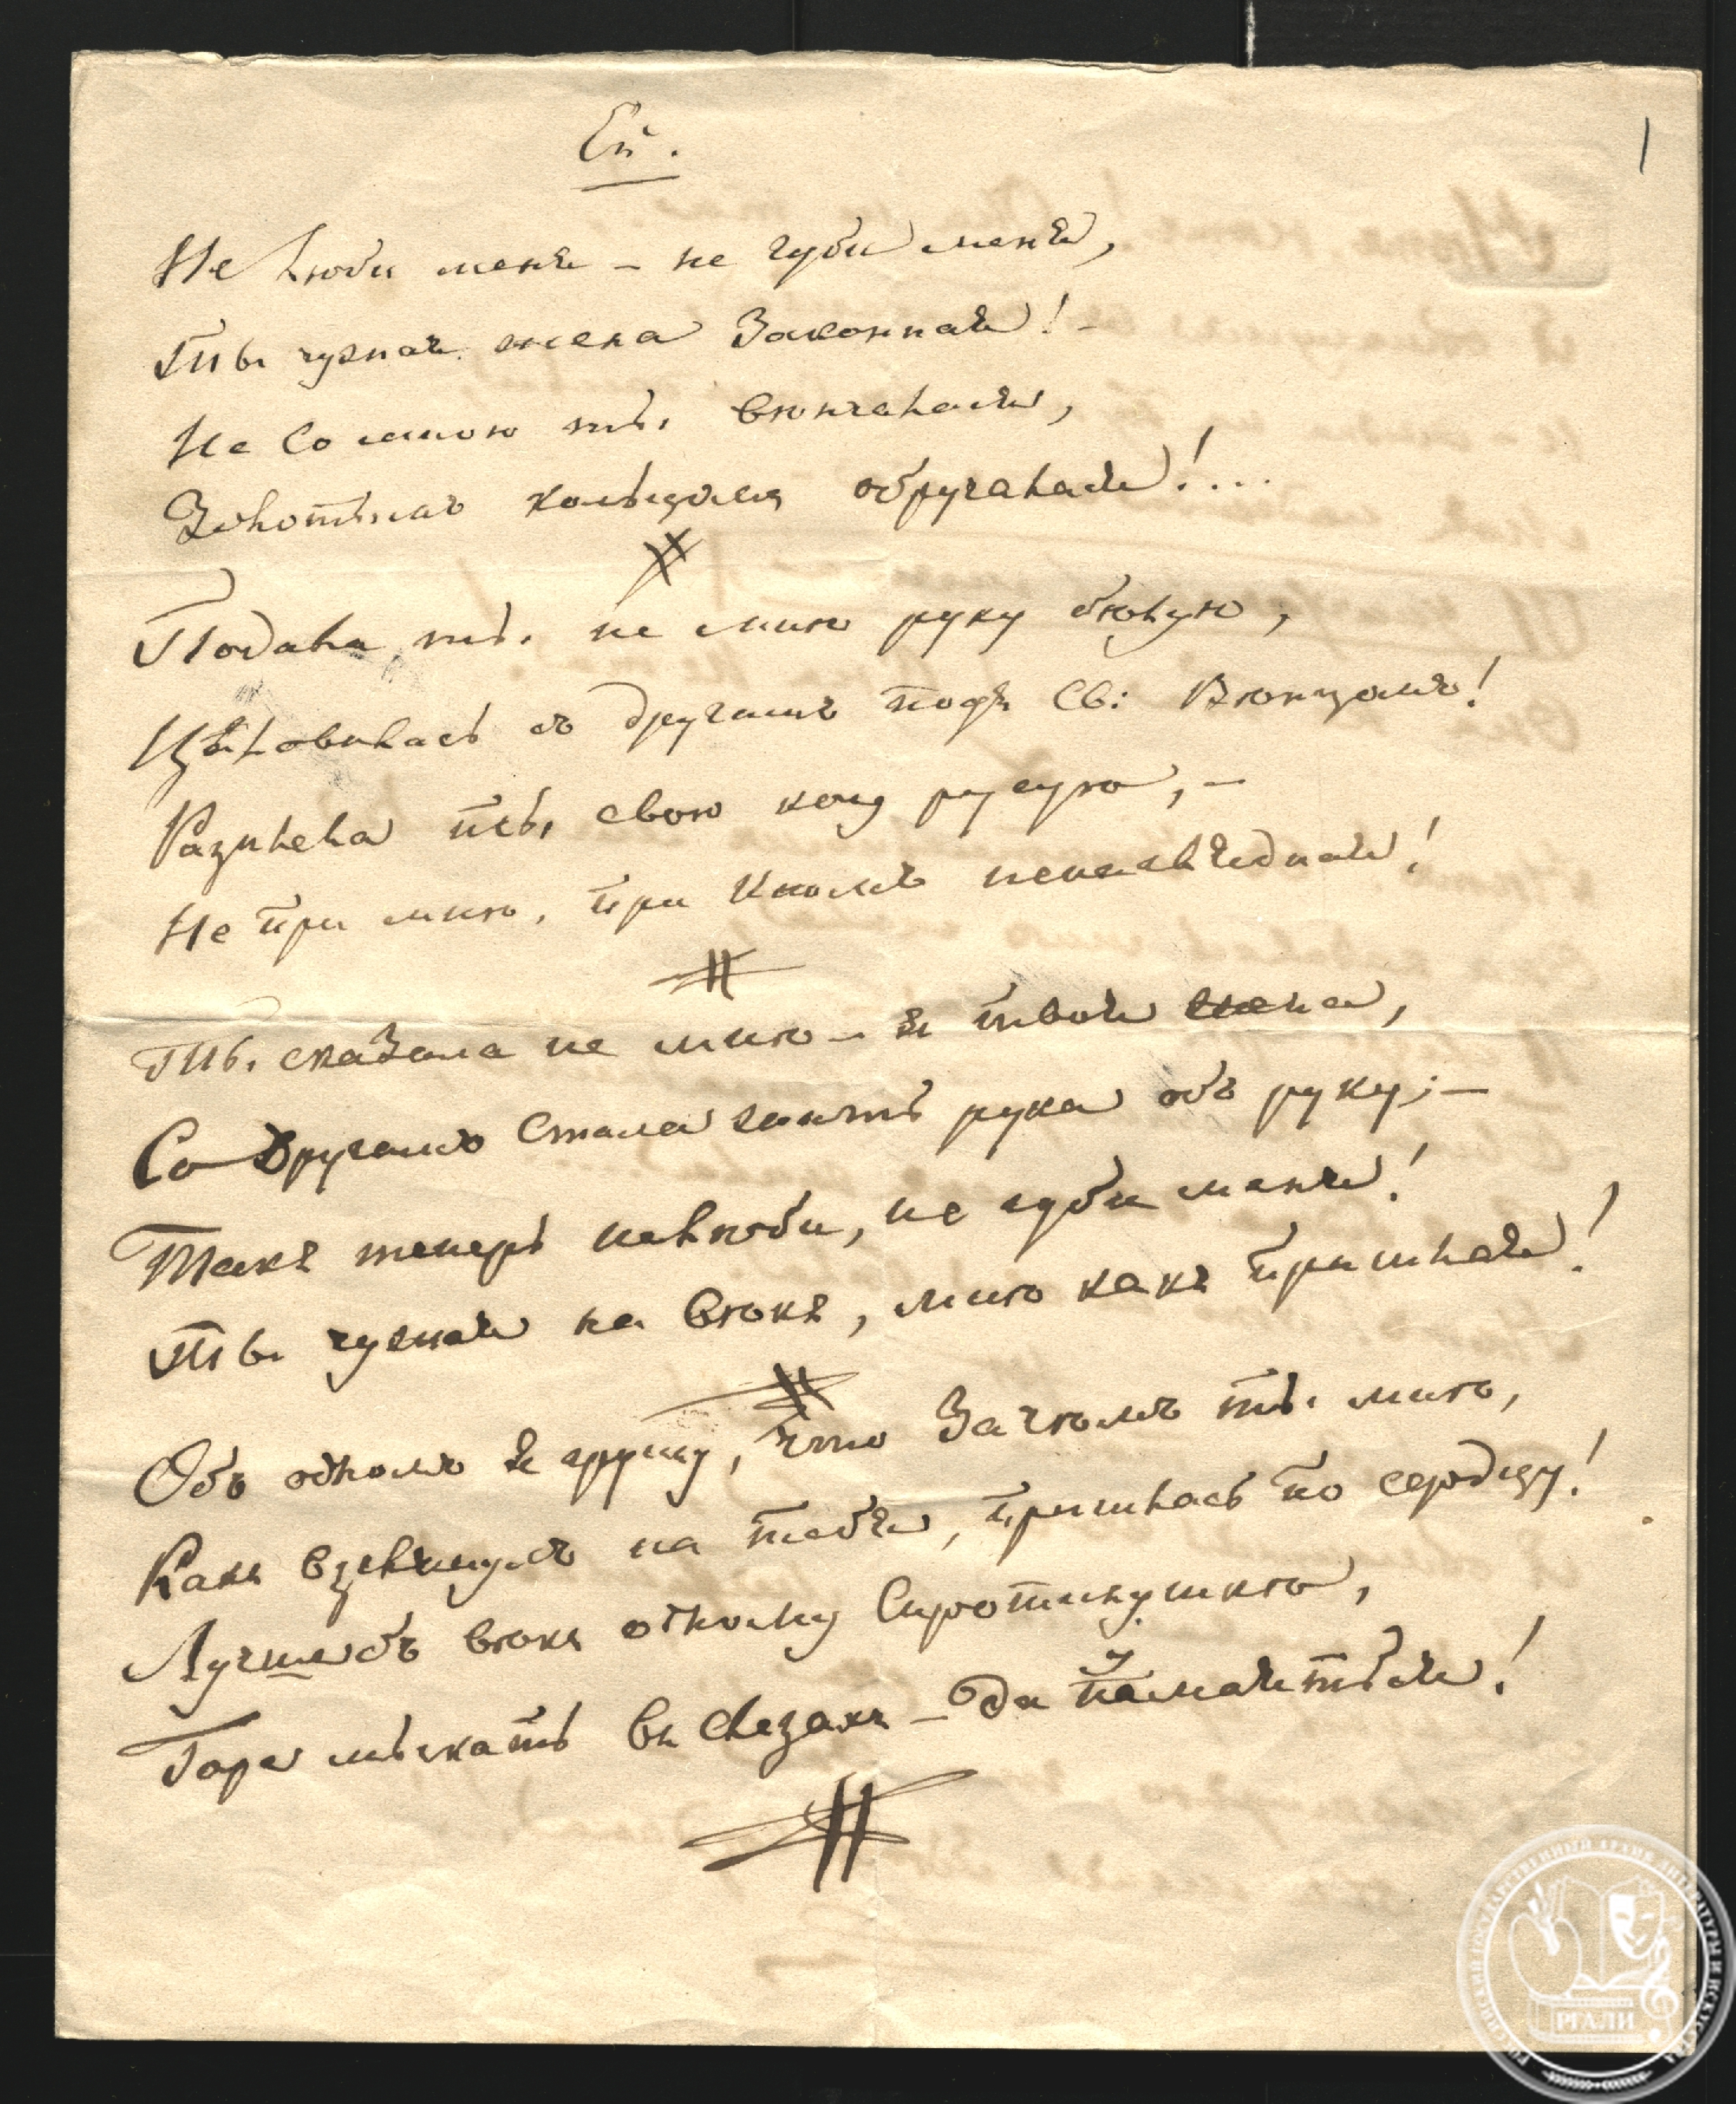 Ей.
1
Не люби меня – не губи меня,
Ты чужая жена Законная! –
Не со мною ты венчаная,
Золотымъ кольцомъ обручаная!...
Подала ты не мнѣ руку бѣлую,
Цѣловалась съ другимъ подъ Св: Вѣнцомъ!
Расплела ты свою косу русую, –
Не при мнѣ, при иномъ ненаглядная!
Ты сказала не мнѣ – я твоя жена,
Со другимъ стала жить рука объ руку; –
Такъ теперь не люби, не губи меня!
Ты чужая на вѣкъ, мнѣ какъ пришлая!
Объ одномъ я грущу, что Зачѣмъ ты мнѣ,
Какъ взглянулъ на тебя, пришлась по сердцу!
Лучшебъ вѣкъ одному Сиротинушкѣ,
Горе мыкать въ слезахъ – да
РГАЛИ
РОССИЙСКИЙ ГОСУДАРСТВЕННЫЙ АРХИВ ЛИТЕРАТУРЫ И ИСКУССТВА